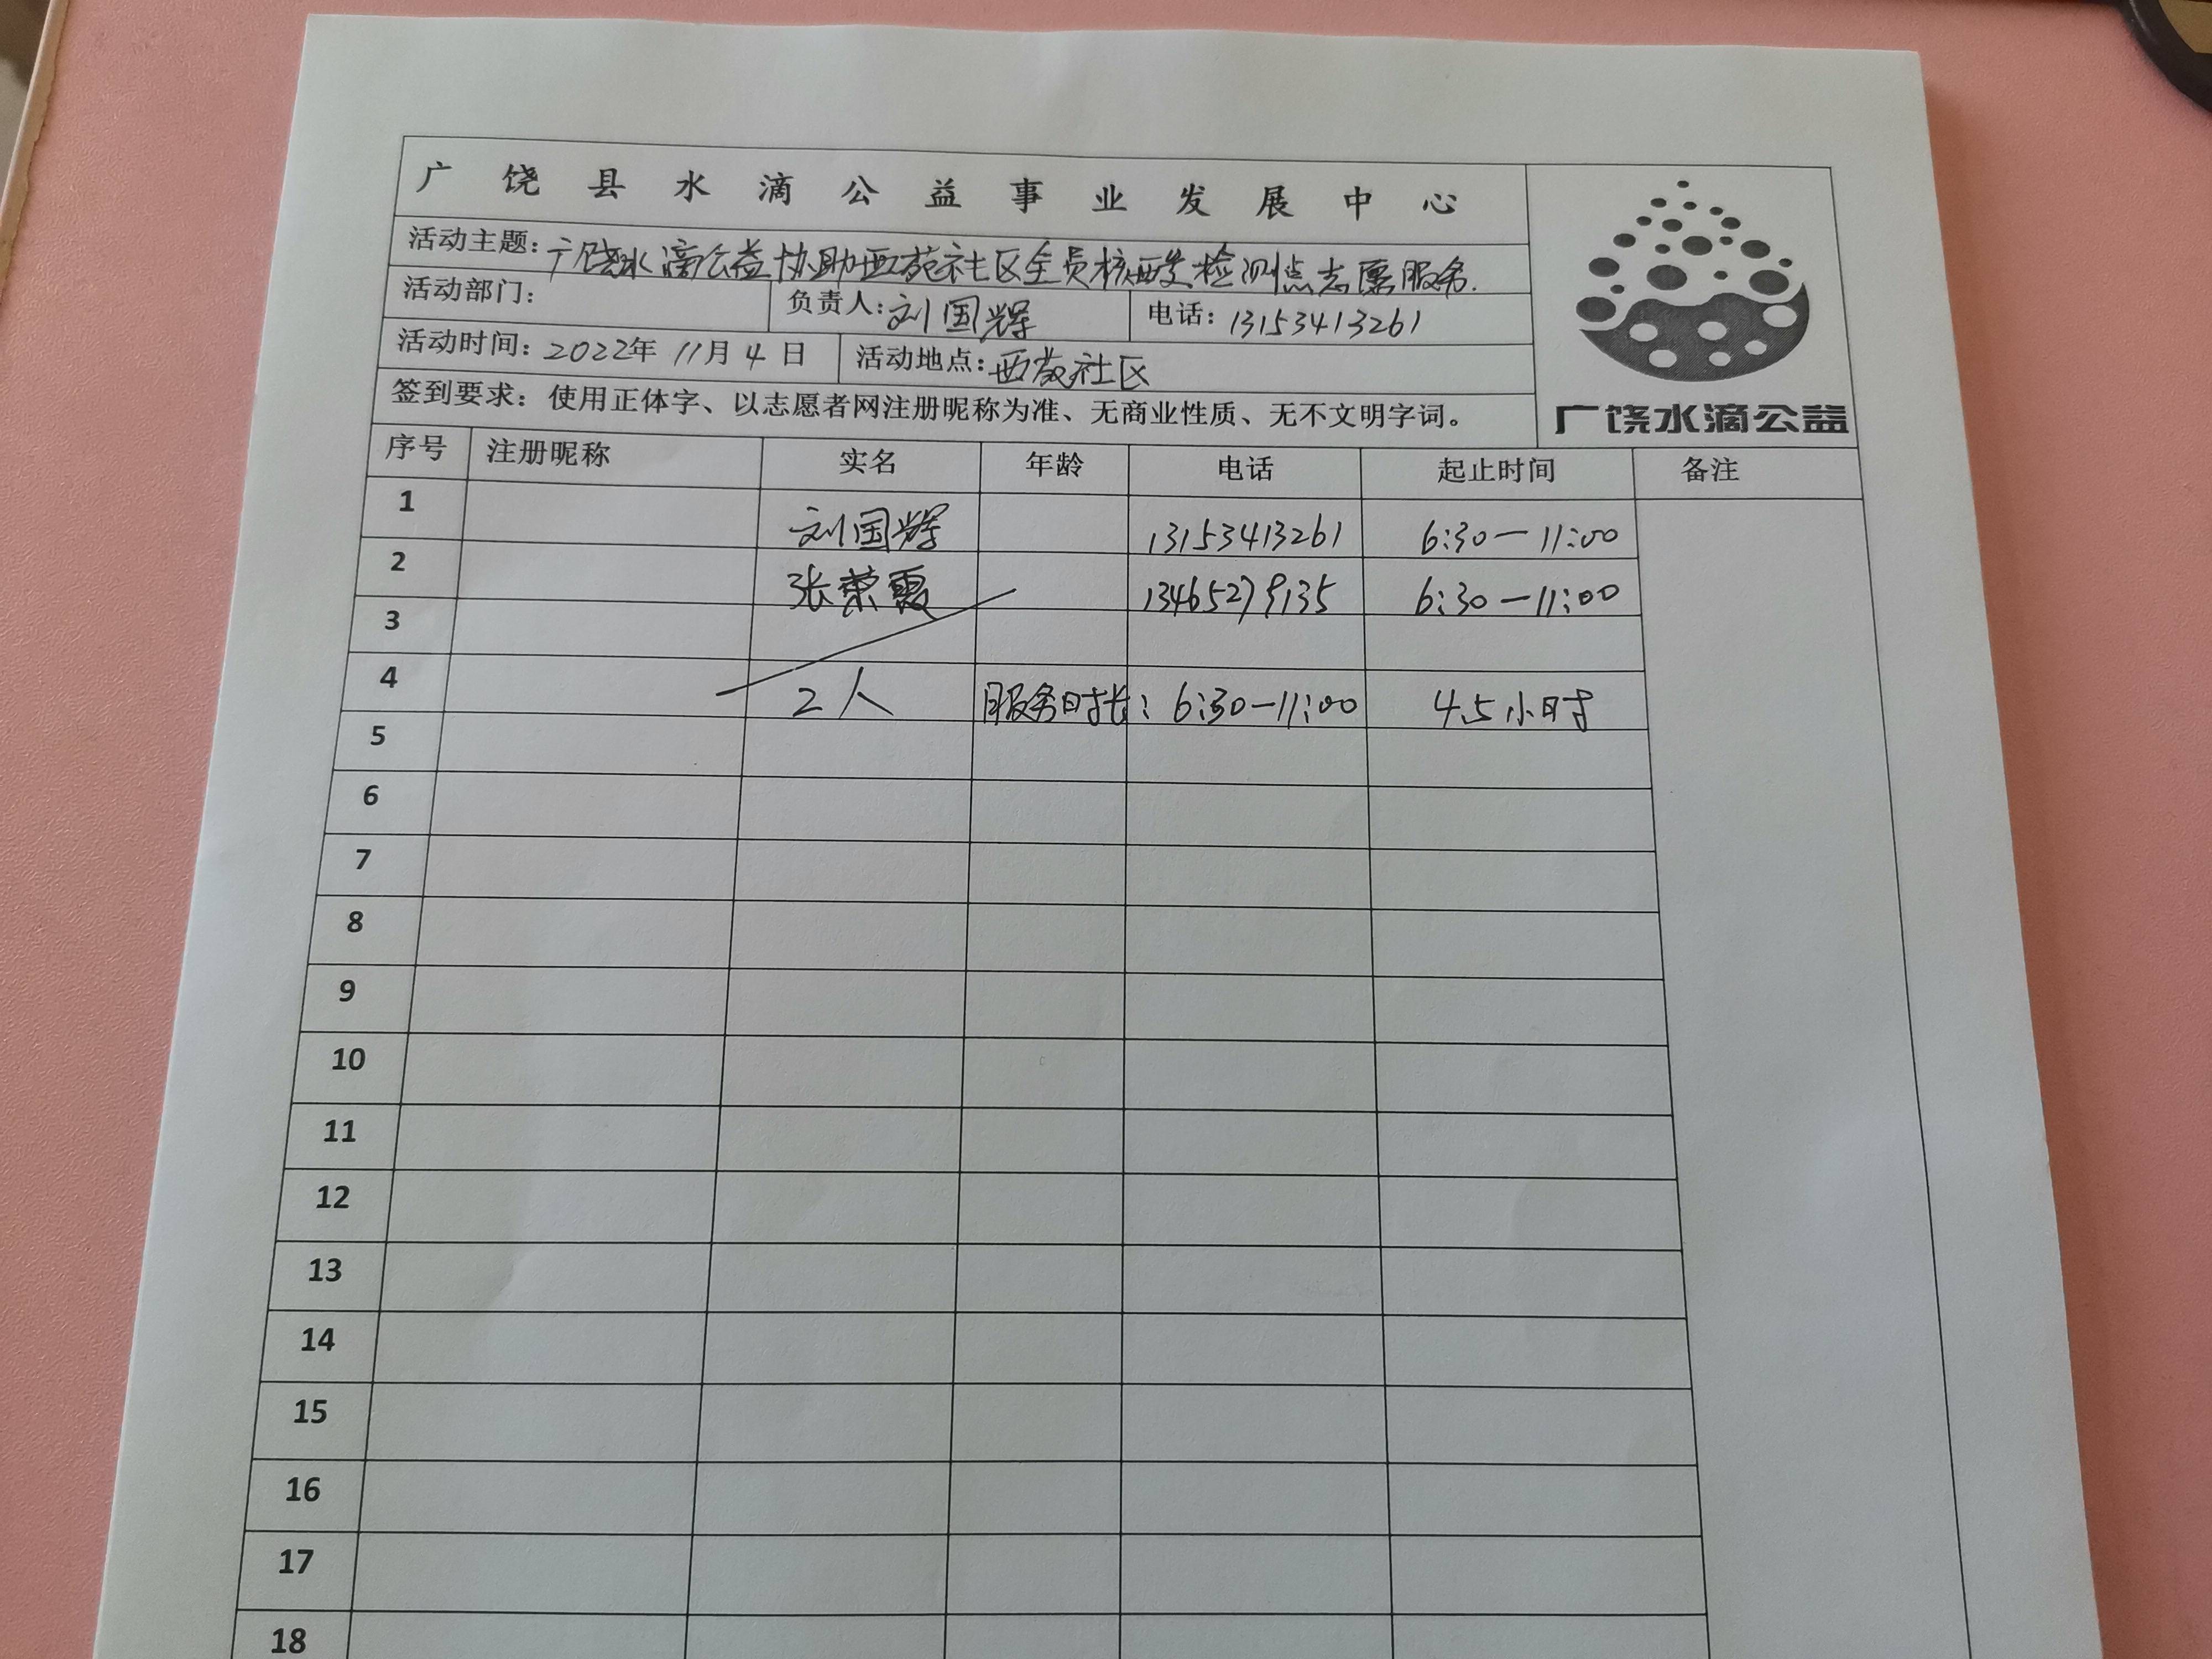 广饶县水滴公益事业发展中心
活动主题：广饶水滴公益协助西苑社区全员核酸检测点志愿服务.
活动部门： 负责人：刘国辉 电话：13153413261
活动时间：2022年11月4日 活动地点：西苑社区
签到要求：使用正体字、以志愿者网注册昵称为准、无商业性质、无不文明字词。
广饶水滴公益
序号 注册昵称 实名 年龄 电话 起止时间 备注
1 刘国辉 13153413261 6:30—11:00
2 张荣霞 13465279135 6:30—11:00
3
4 2人 服务时长：6:30—11:00 4.5小时
5
6
7
8
9
10
11
12
13
14
15
16
17
18